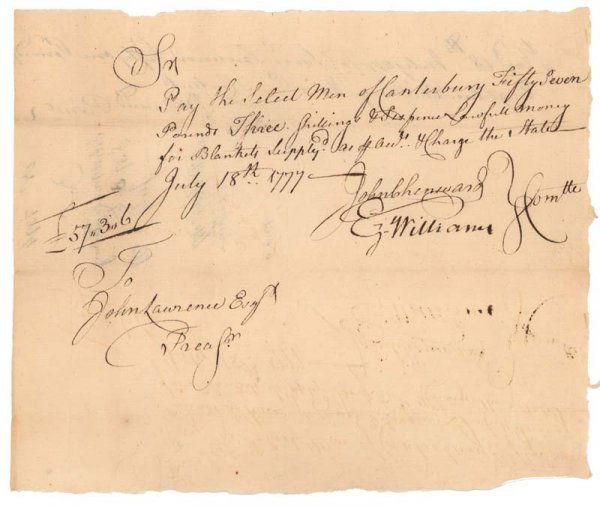 Sr
Pay the Select Men of Canterbury Fifty Seven
Pounds Three Shillings & Sixpence Lawfull money
for Blankets Supply.d as # Acct. & Charge the State
July 18th. 1777
John Chenward
Ez. Williams
Comtte
£57"3"6
To
John Lawrence Esqr
Treasr